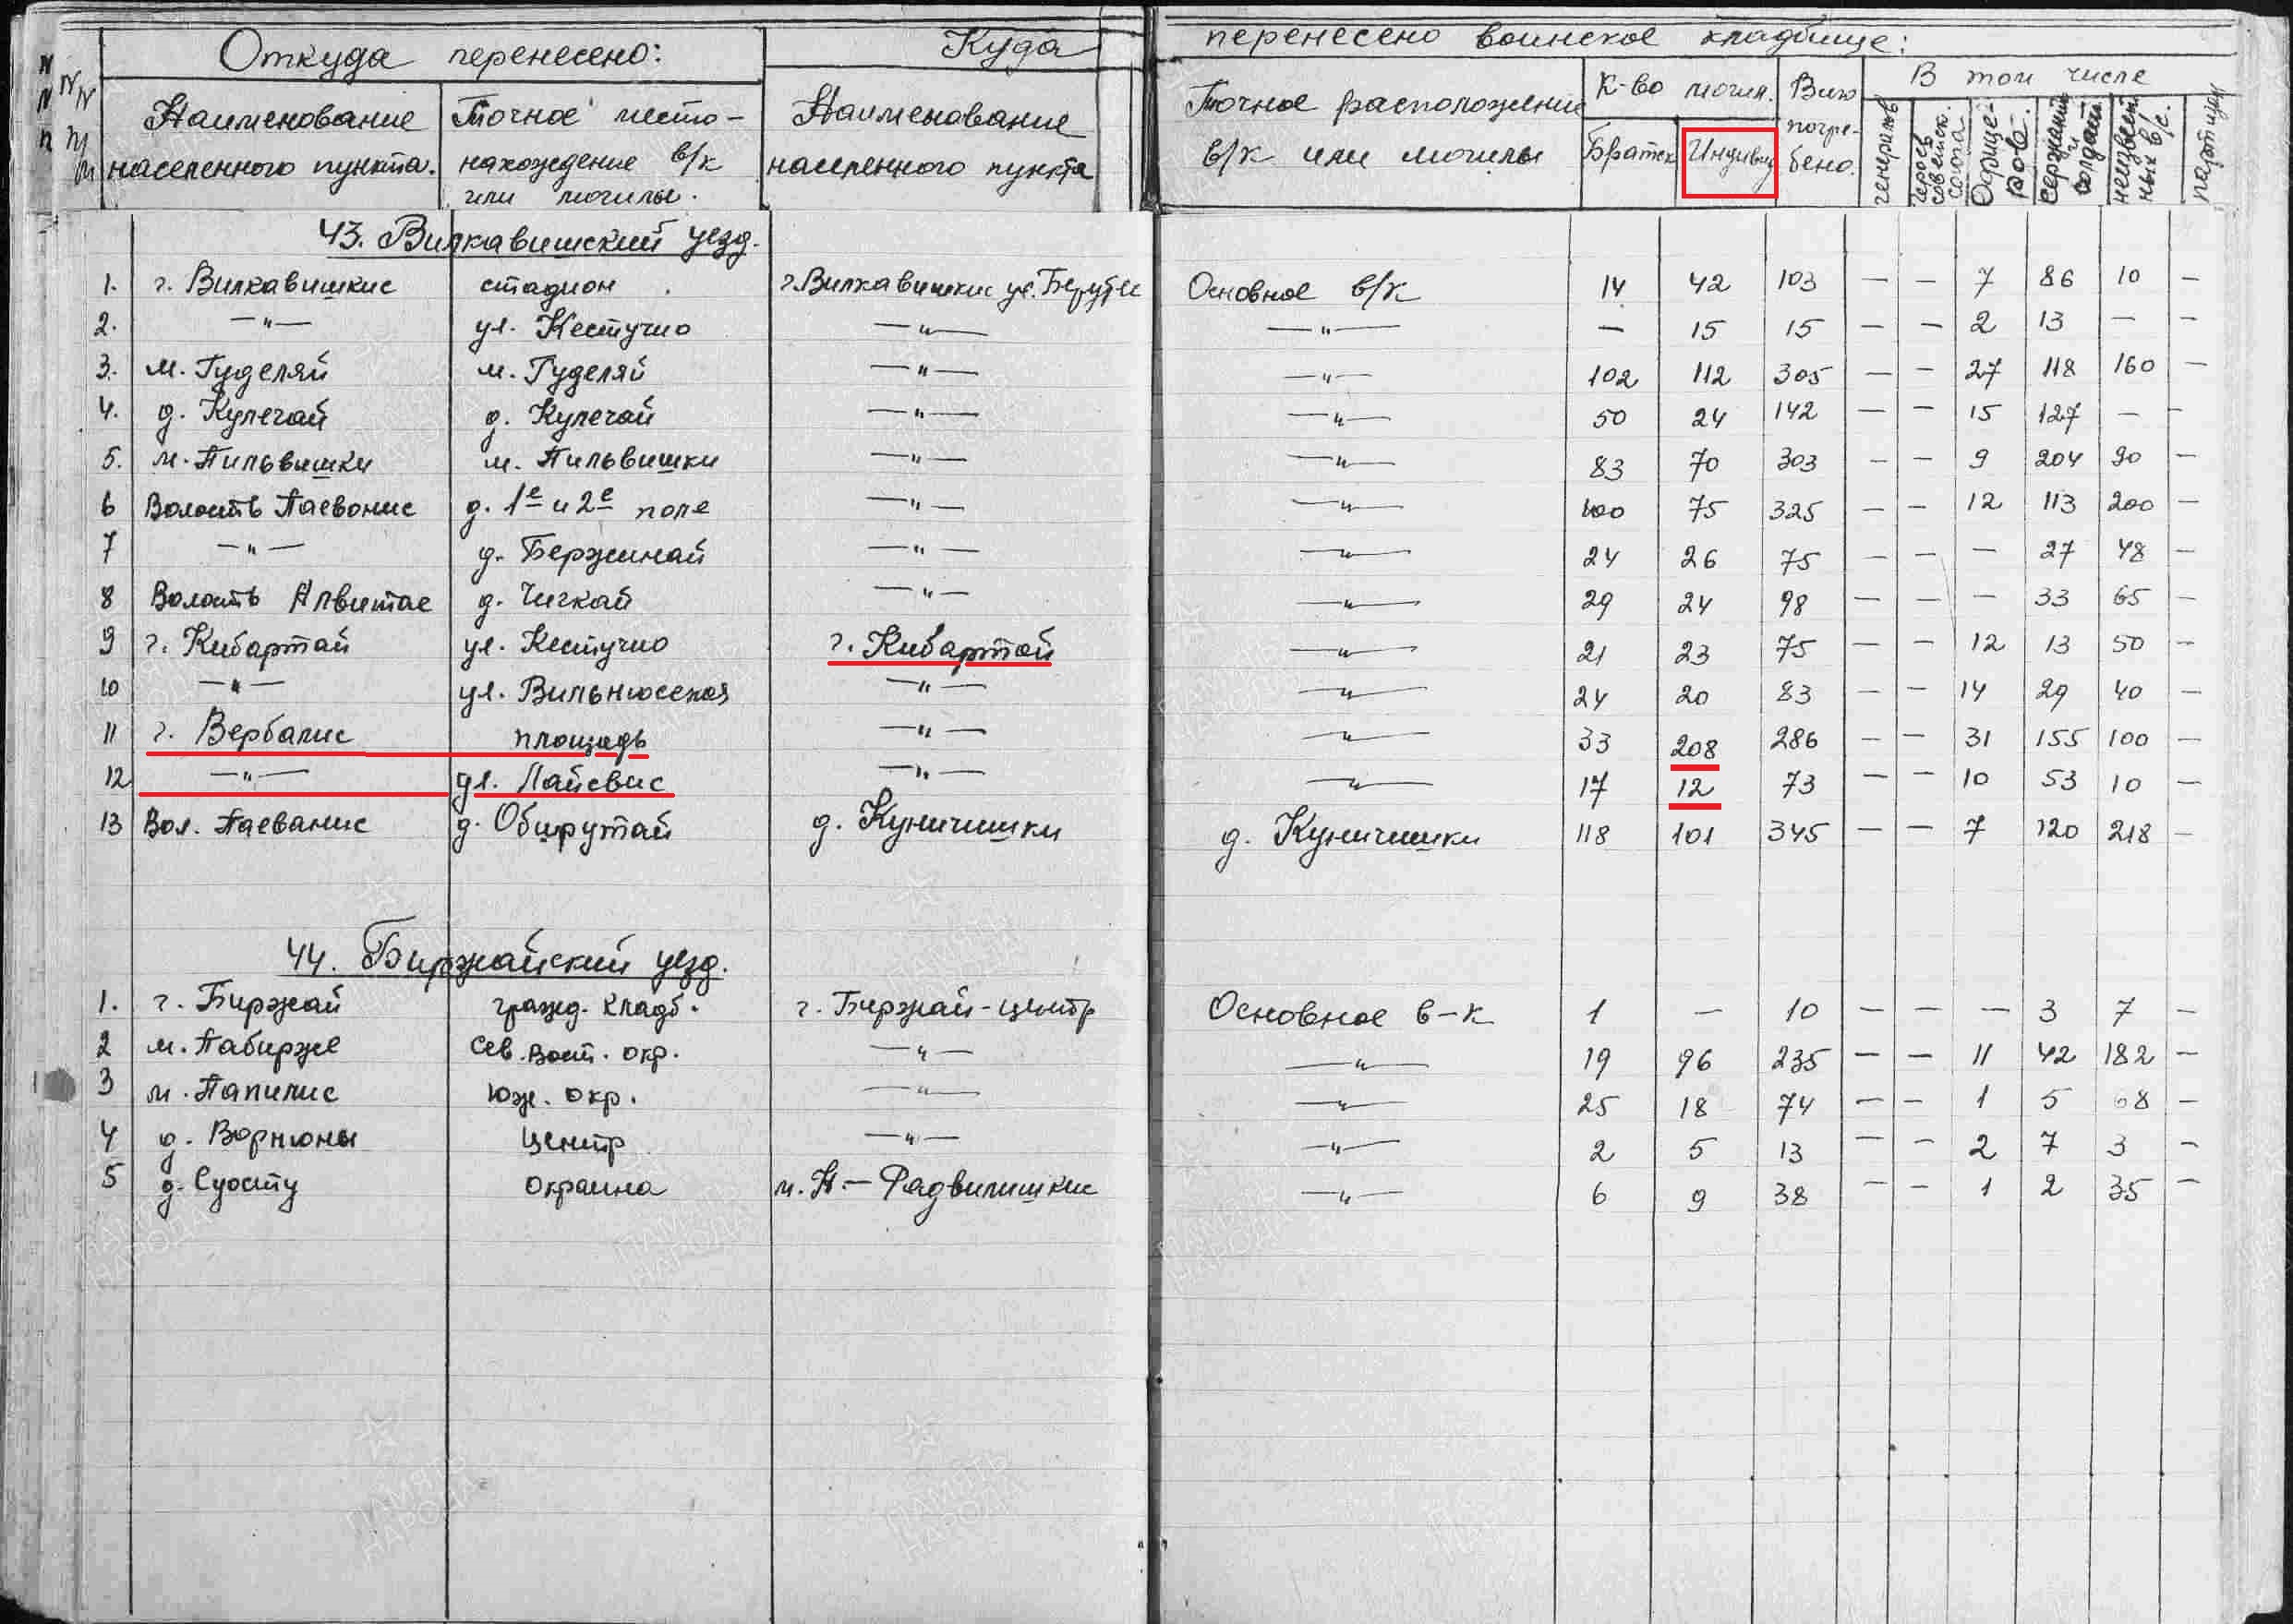 Откуда перенесено: Куда перенесено воинское кладбище:
N N п
NN п/п
Наименование населенного пункта.
Точное местонахождение в/к или могилы.
Наименование населенного пункта
Точное расположение в/к или могилы
К-во могил.
Братск Индивид
Всего погребено.
В том числе
генералов
героев советск. союза
Офицеров.
сержант и солдат
неизвестных в/с.
партизан
43. Вилкавишский уезд.
1. г. Вилкавишкис стадион г. Вилкавишкис ул. Берутес Основное в/к 14 42 103 — — 7 86 10 —
2. —"— ул. Кестучио —"— —"— — 15 15 — — 2 13 — —
3. м. Гуделяй м. Гуделяй —"— —"— 102 112 305 — — 27 118 160 —
4. д. Кулечай д. Кулечай —"— —"— 50 24 142 — — 15 127 — —
5. м. Пильвишки м. Пильвишки —"— —"— 83 70 303 — — 9 204 90 —
6 Волость Паевонис д. 1е и 2е поле —"— —"— 100 75 325 — — 12 113 200 —
7 —"— д. Бержинай —"— —"— 24 26 75 — — — 27 48 —
8 Волость Алвитае д. Чичкай —"— —"— 29 24 98 — — — 33 65 —
9 г. Кибартай ул. Кестучио г. Кибартай —"— 21 23 75 — — 12 13 50 —
10 —"— ул. Вильнюсская —"— —"— 24 20 83 — — 14 29 40 —
11 г. Вербалис площадь —"— —"— 33 208 286 — — 31 155 100 —
12 —"— ул. Лайсвис —"— —"— 17 12 73 — — 10 53 10 —
13 Вол. Паеванис д. Обшрутай д. Куничишки д. Куничишки 118 101 345 — — 7 120 218 —
44. Биржайский уезд.
1. г. Биржай гражд. кладб. г. Биржай-центр Основное в-к 1 — 10 — — — 3 7 —
2 м. Пабирже Сев. Вост. окр. —"— —"— 19 96 235 — — 11 42 182 —
3 м. Папилис Юж. окр. —"— —"— 25 18 74 — — 1 5 68 —
4 д. Ворнюны Центр —"— —"— 2 5 13 — — 2 7 3 —
5 д. Суосту окраина м. Н-Радвилишкис —"— 6 9 38 — — 1 2 35 —
ПАМЯТЬ НАРОДА